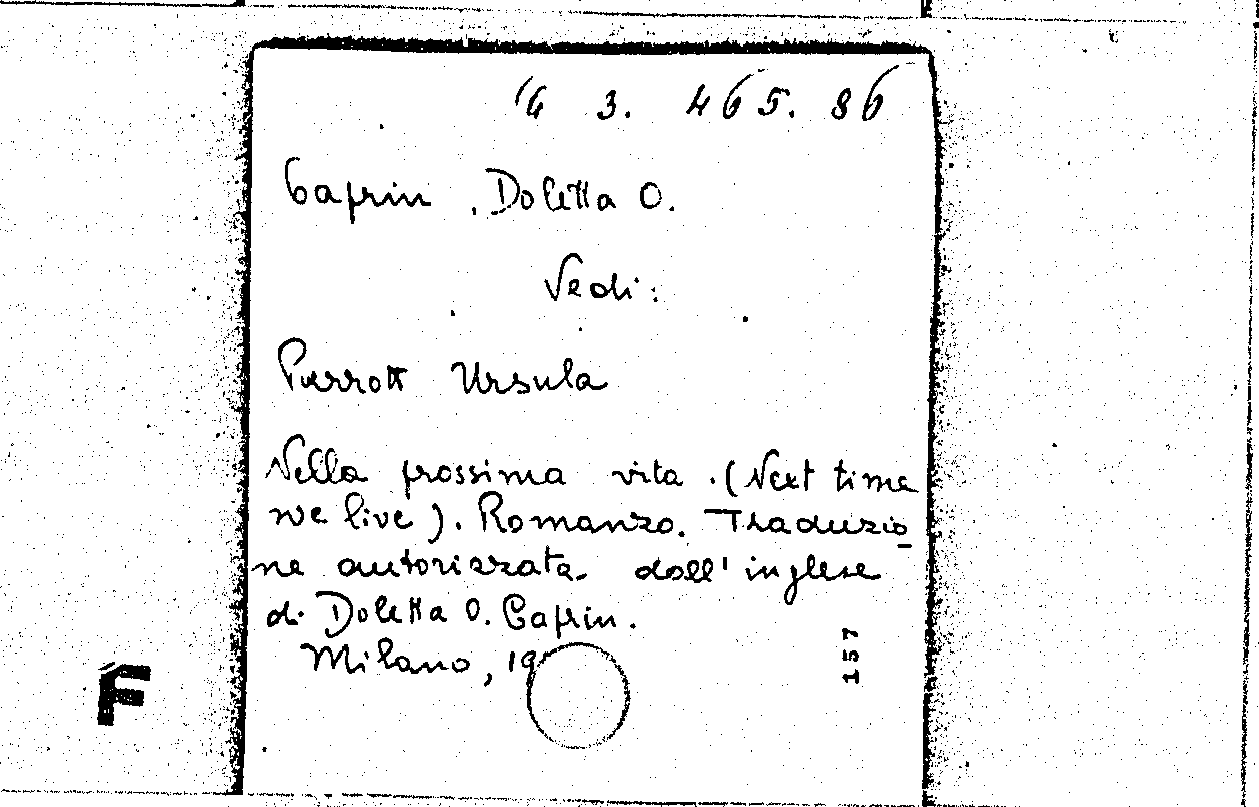 G 3. 465. 86
Caprin, Doletta O.
Vedi:
Parrott Ursula
Nella prossima vita. (Next time
we live). Romanzo. Traduzio
ne autorizzata dall'inglese
di Doletta O. Caprin.
Milano,
157
F